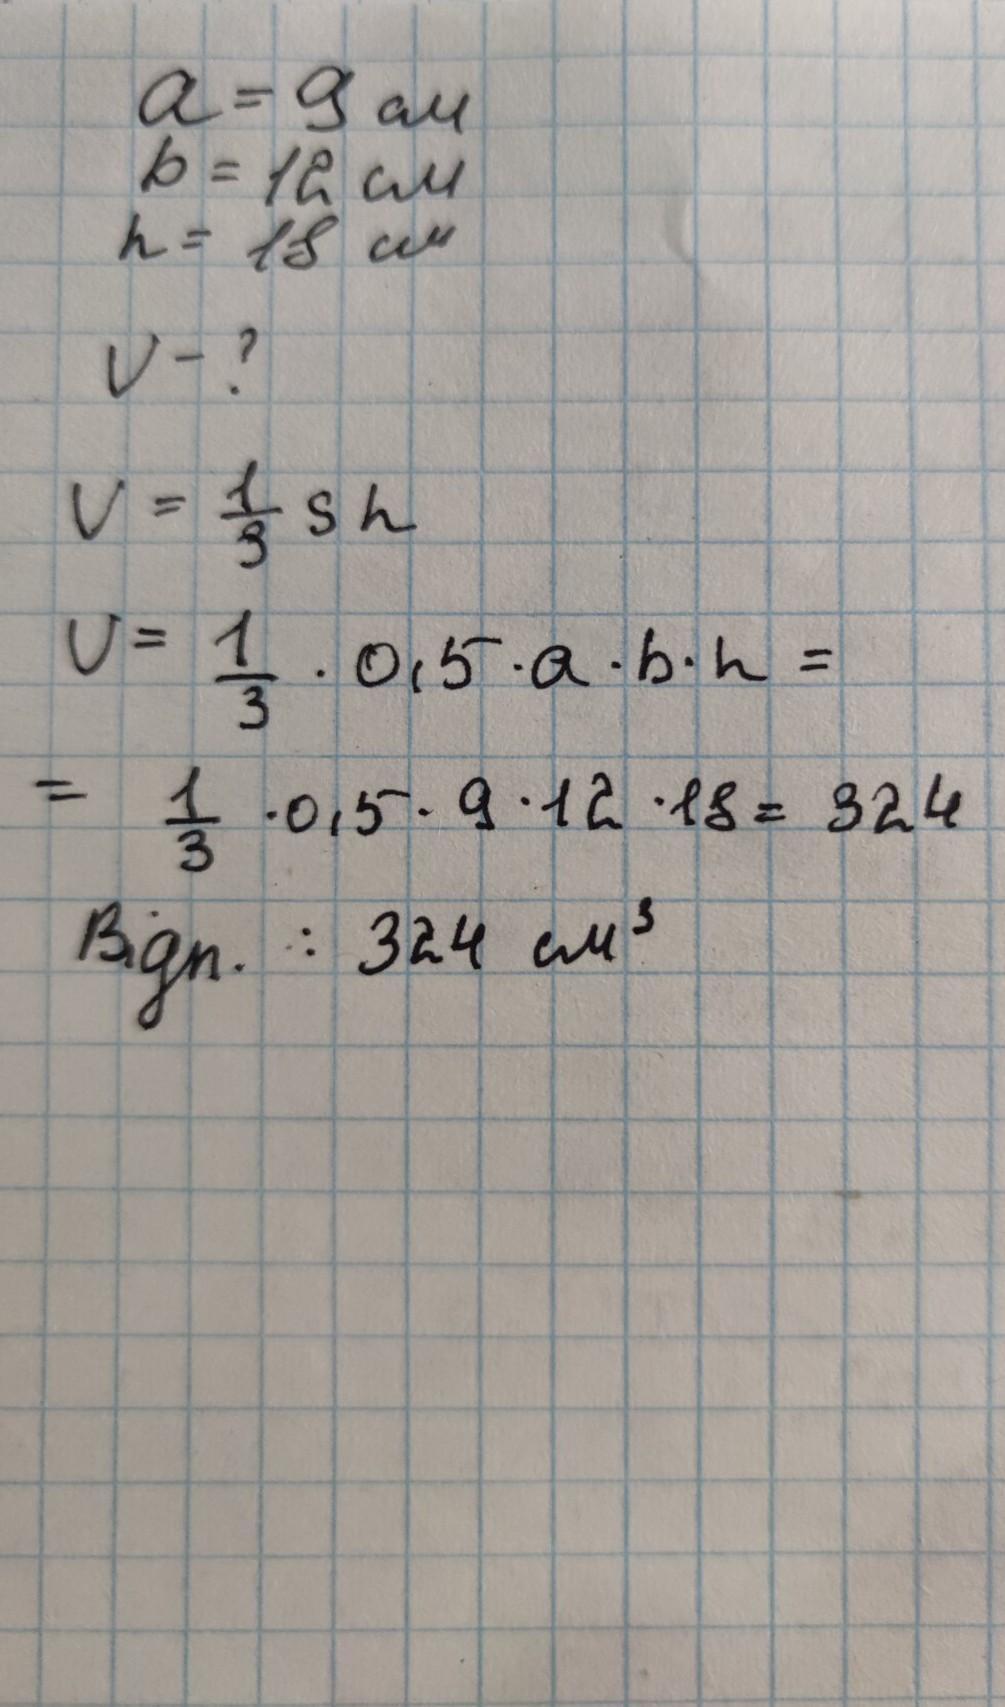 a = 9 см
b = 12 см
h = 18 см
V - ?
V = 1/3 s h
V = 1/3 · 0,5 · a · b · h =
= 1/3 · 0,5 · 9 · 12 · 18 = 324
Відп. : 324 см³